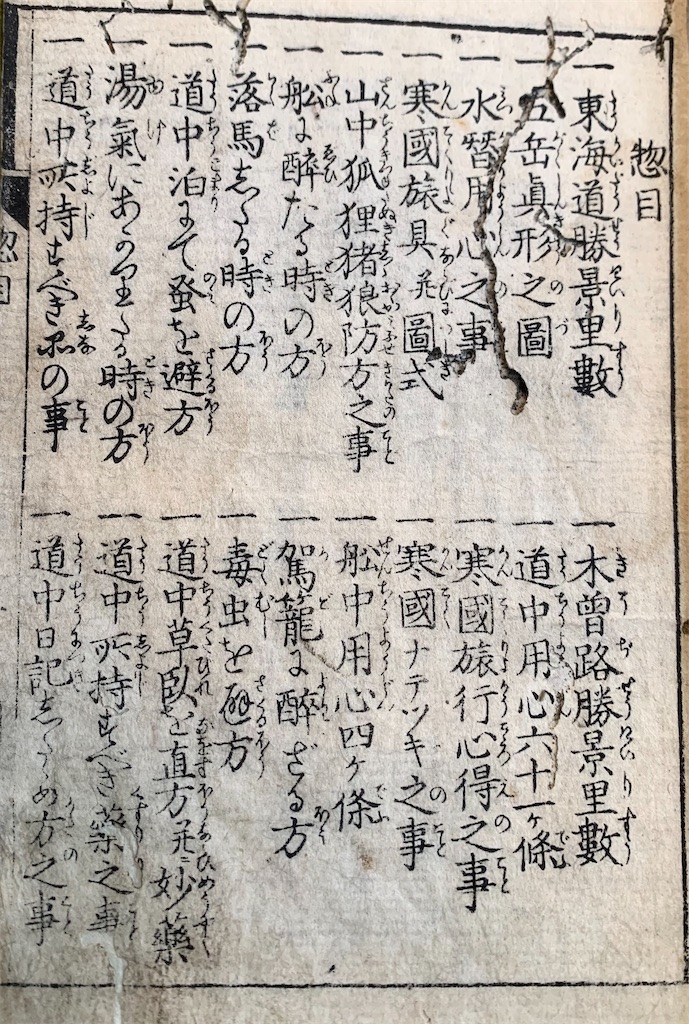 惣目
一東海道勝景里數
一木曽路勝景里數
一五岳眞形之圖
一道中用心六十一ヶ條
一水替用心之事
一寒國旅行心得之事
一寒國旅具并圖式
一寒國ナデツキ之事
一山中狐狸猪狼防方之事
一舩中用心四ヶ條
一舩に醉たる時の方
一駕籠に醉ざる方
一落馬したる時の方
一毒虫を避方
一道中泊にて蚤を避方
一道中草臥を直方并ニ妙藥
一湯氣にあがりたる時の方
一道中所持すべき藥之事
一道中所持すべき品の事
一道中日記したゝめ方之事
惣目